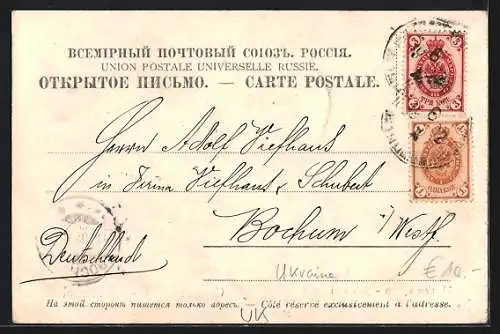 ВСЕМІРНЫЙ ПОЧТОВЫЙ СОЮЗЪ. РОССІЯ.
UNION POSTALE UNIVERSELLE RUSSIE.
ОТКРЫТОЕ ПИСЬМО. — CARTE POSTALE.
Herrn Adolf Viefhaus
in Firma Viefhaus & Schubert
Bochum i/Westf.
Deutschland
Ukraine
€ 10.-
На этой сторонѣ пишется только адресъ. — Côté réservé exclusivement à l'adresse.
UK
3 3
3 3
1
1 1